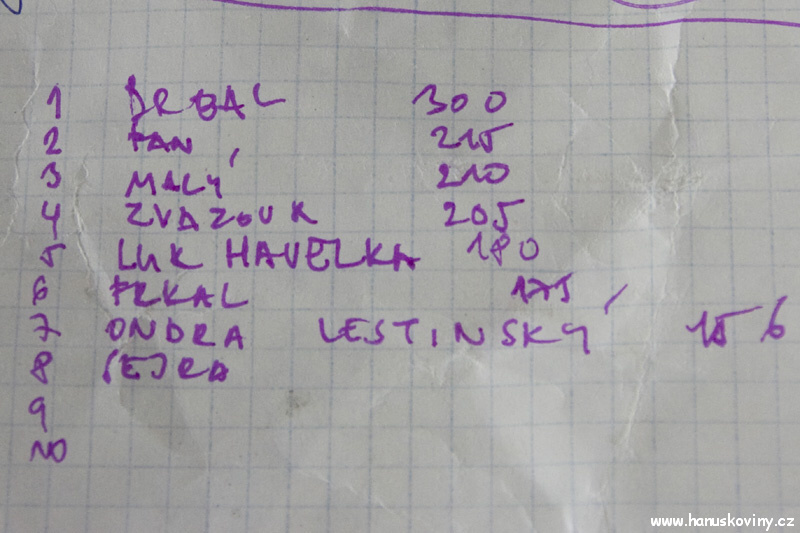 1 DRBAL 300
2 PAN 215
3 MALÝ 210
4 ZVAZOUK 205
5 LUK HAVELKA 180
6 PRKAL 175
7 ONDRA LESTINSKÝ 156
8 SEJRA
9
10
www.hanuskoviny.cz